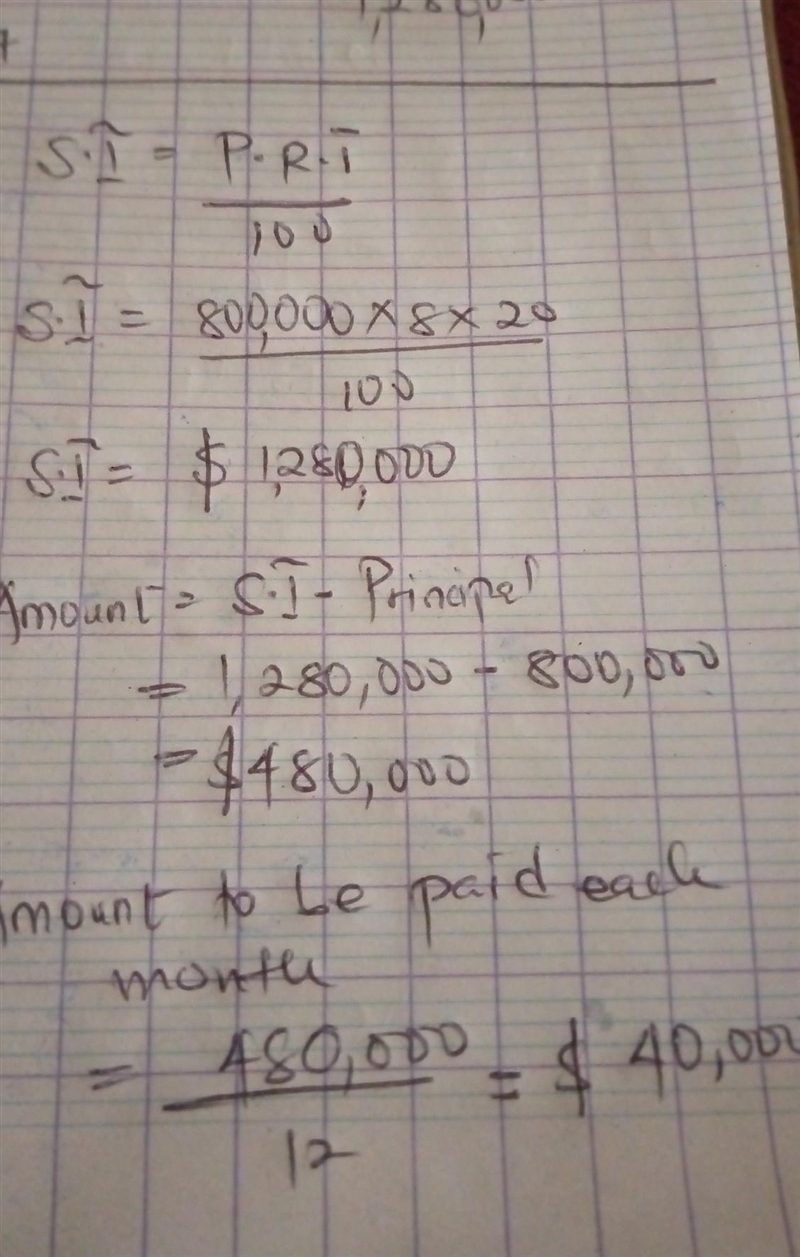 S.I = P.R.T
100
S.I = 800,000 × 8 × 20
100
S.I = $ 1,280,000
Amount = S.I - Principal
= 1,280,000 - 800,000
= $480,000
Amount to be paid each
month
= 480,000 = $ 40,000
12